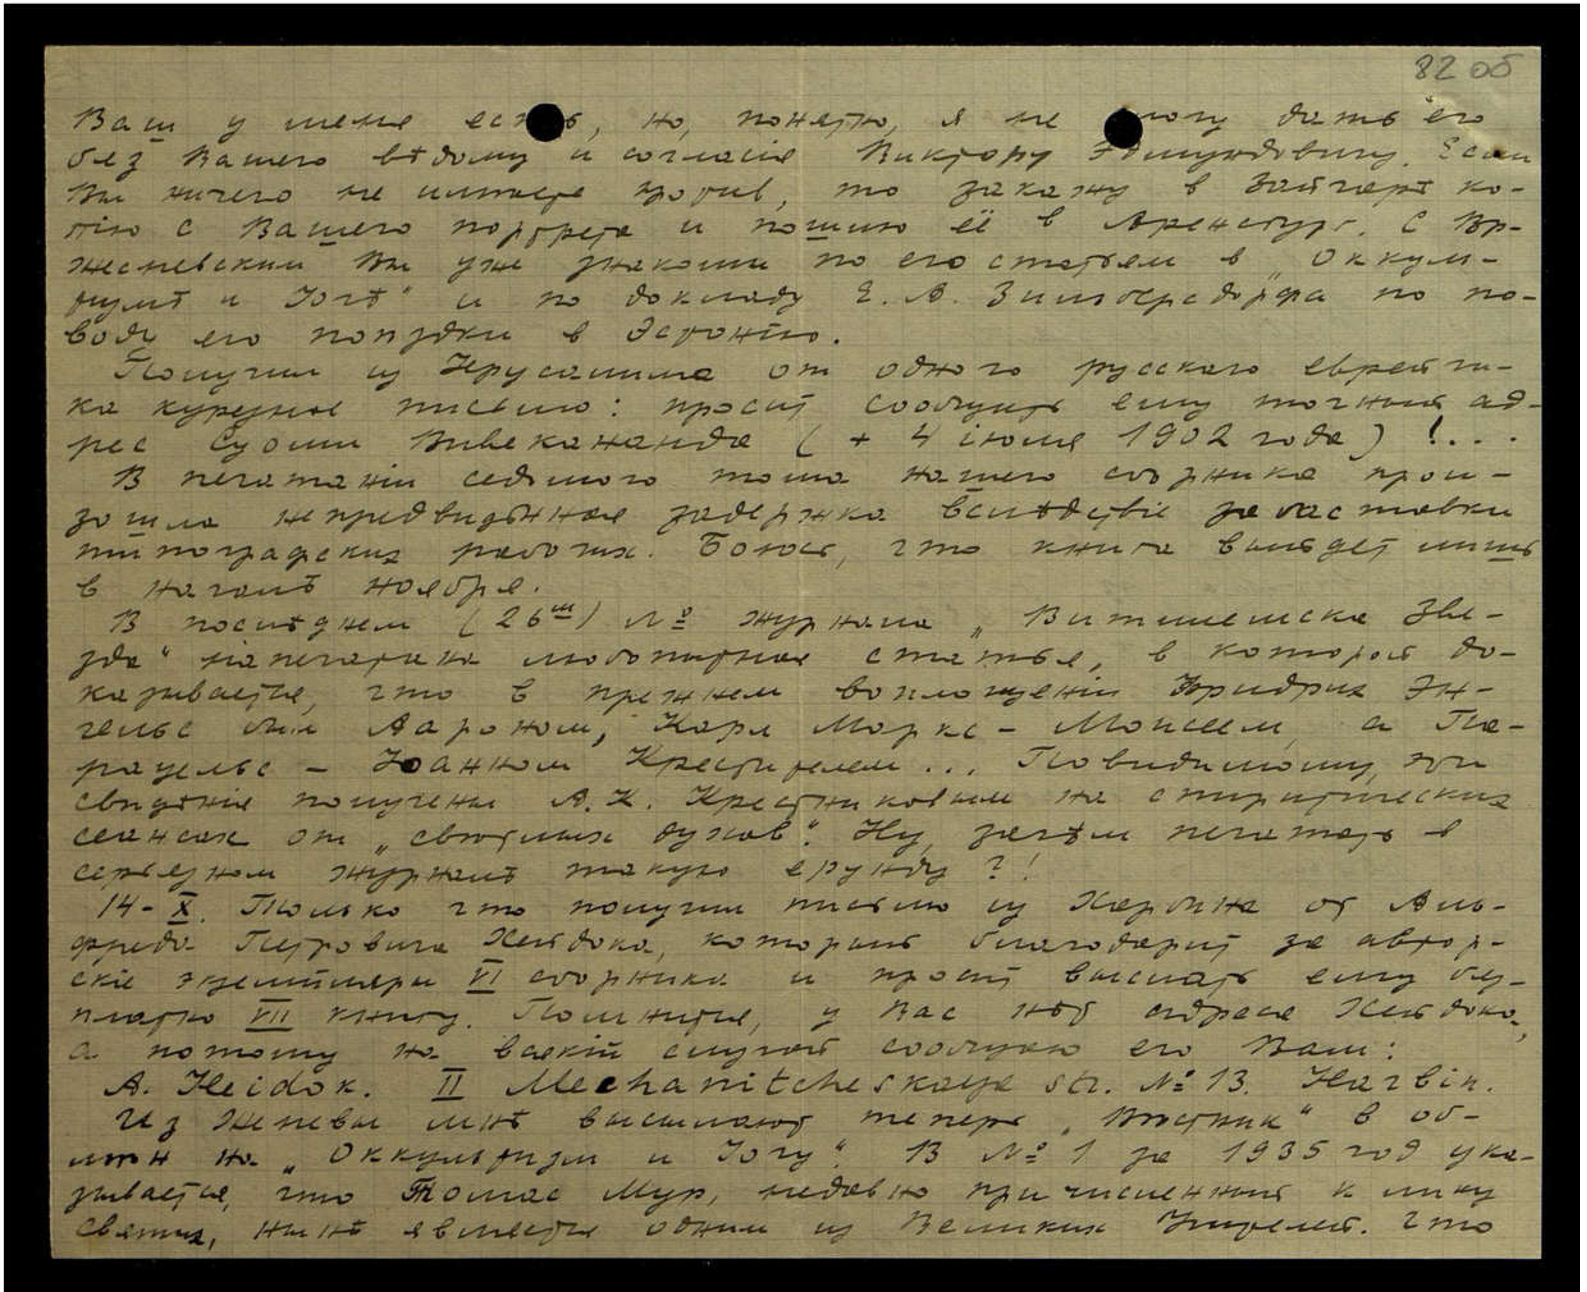 82 об
Ваш у меня есть, но, понятно, я не могу дать его
без Вашего вѣдома и согласія Виктору Эдмундовичу. Если
Вы ничего не имѣете против, то закажу в Зайгерѣ ко-
пію с Вашего портрета и пошлю её в Аренсбург. С Вр-
жесневским Вы уже знакомы по его статьям в „Оккуль-
тизмѣ и Іогѣ" и по докладу Е. А. Зильберсдорфа по по-
воду его поѣздки в Эстонію.
Получил из Іерусалима от одного русского еврейчи-
ка курьезное письмо: просит сообщить ему точный ад-
рес Суоми Вивекананда (+ 4 іюля 1902 года) !...
В печатаніи седьмого тома нашего сборника прои-
зошла непредвидѣнная задержка вслѣдствіе забастовки
типографских рабочих. Боюсь, что книга выйдет лишь
в началѣ ноября.
В послѣднем (26ом) № журнала „Витлеемска Зве-
зда" напечатана любопытная статья, в которой до-
казывается, что в прежнем воплощеніи Фридрих Эн-
гельс был Аароном, Карл Маркс – Моисеем, а Па-
рацельс – Іоанном Крестителем... Повидимому, эти
свѣдѣнія получены А.К. Крестниковым на спиритических
сеансах от „свѣтлых духов". Ну, зачѣм печатать в
серьезном журналѣ такую ерунду ?!
14-X. Только что получил письмо из Харбина от Аль-
фреда Петровича Хейдока, который благодарит за автор-
скіе экземпляры VI сборника и просит выслать ему бес-
платно VII книгу. Помнится, у Вас нѣт адреса Хейдока,
а потому на всякій случай сообщаю его Вам:
A. Heidok. II Mechanitcheskaya str. № 13. Harbin.
Из Женевы мнѣ высылают теперь „Вѣстник" в об-
мѣн на „Оккультизм и Іогу". В № 1 за 1935 год ука-
зывается, что Томас Мур, недавно причисленный к лику
святых, нынѣ является одним из Великих Учителей. Что